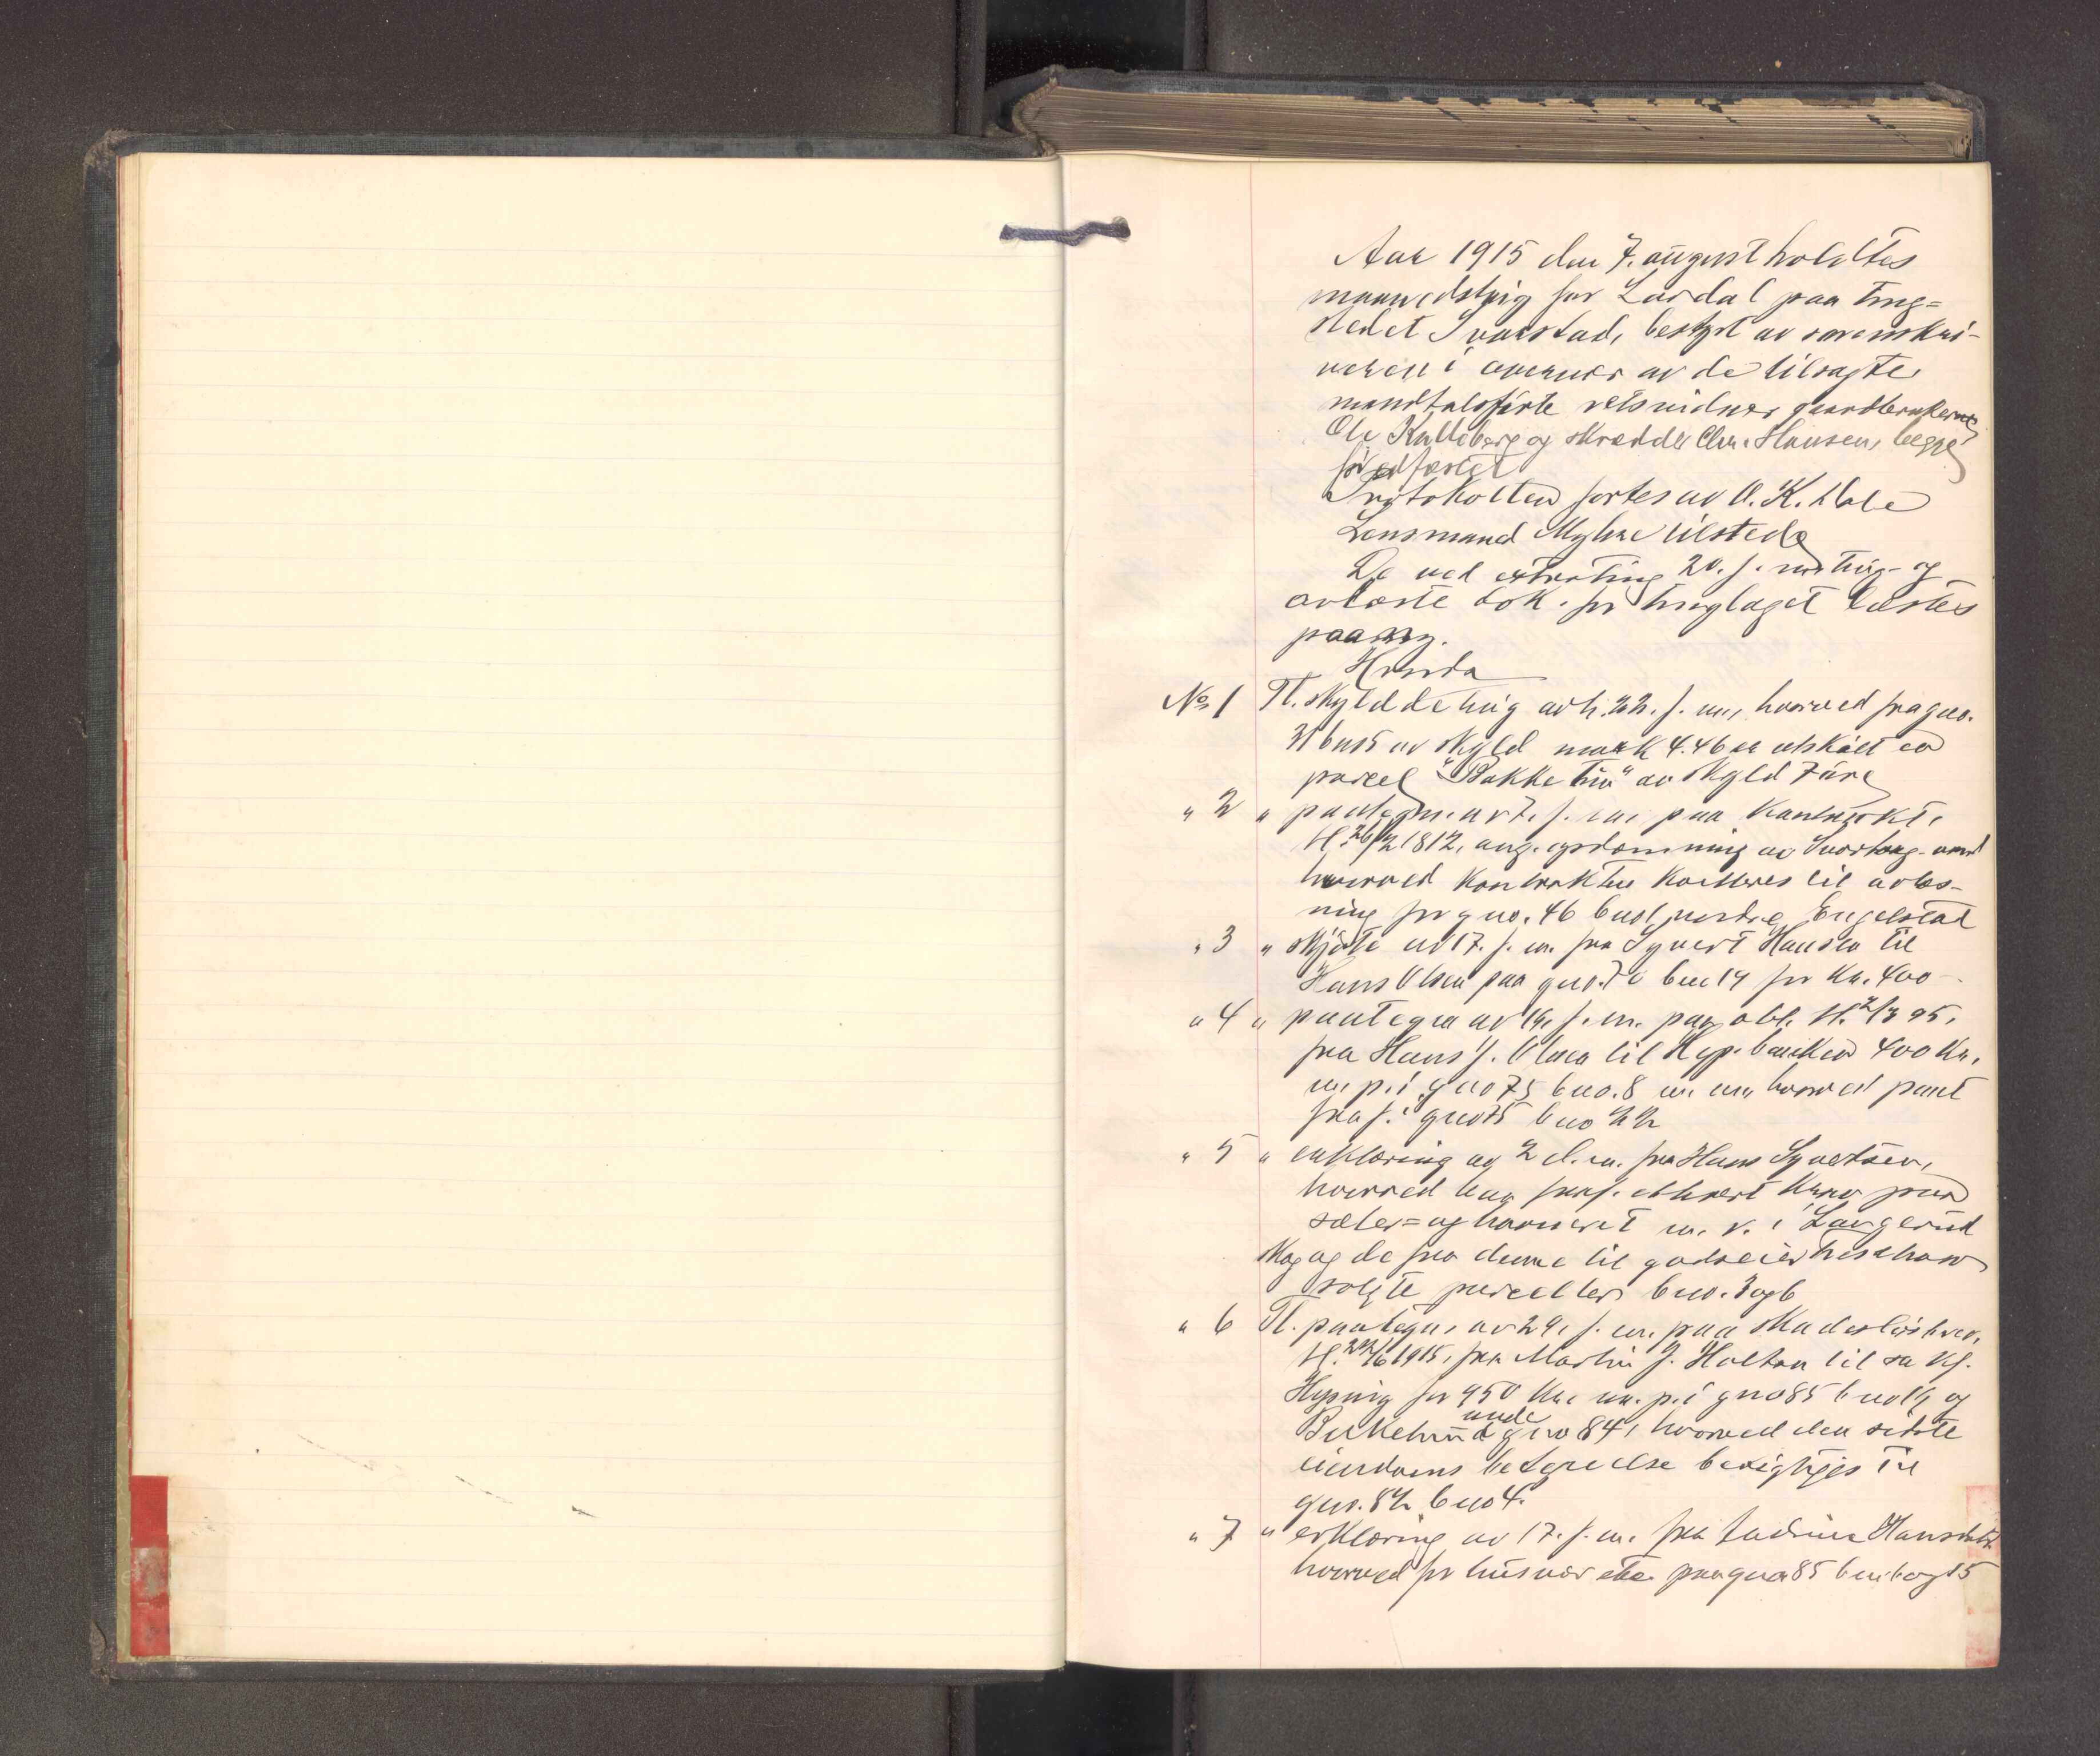 Aar 1915 den 7. august holdtes
maanedsting for Lardal paa Ting-
stedet Svarstad, bestyrt av sorenskri-
veren i overvær av de tilsagte
mandtalsførte retsvidner gaardbrukerne
Ole Kulleberg og skrædder Chr. Hansen, begge
før edfæstet
Protokollen førtes av O. K. Dale
Lensmand Myhre tilstede
De ved extrating 20. f. m. ting- og
avlæste dok. for tinglaget læstes
paany.
No 1 Tl. skylddeling avh. 22. f. m., hvorved fra gno.
31 bno 5 av skyld mark 4.46 er utskilt en
parcel "Bakketun" av skyld 7 øre
" 2 " paategn. av 7. f. m. paa kontrakt,
tl. 26/2 1812, ang. opdæmning av
hvorved kontrakten kvitteres til avlæs-
ning for gno. 46 bno 1, nordre Engelstad
" 3 " skjøte av 17. f. m. fra Syvert Hansen til
Hans Olsen paa gno. bno 14 for Kr. 400
" 4 " paategn av 19. f. m. paa obl. tl. 2/3 95,
fra Hans J. Olsen til Hyp. banken 400 Kr.
m. p. i gno 75 bno. 8 m. m., hvorved pant
fraf. i gno 75 bno 22
" 5 " erklæring av 2 d. m. fra Hans Syvertsen,
hvorved han fraf. ethvert krav paa
sæter- og havneret m. v. i Langerud
skog og de fra denne til godseier Treschow
solgte parceller bno. 3 og 6
" 6 Tl. paategn. av 29. f. m. paa skadesløsbrev,
tl. 22/6 1915, fra Martin J. Holtan til
for 950 Kr. m. p. i gno 85 bno 12 og
Birkelund under gno 84, hvorved den sidste
eiendoms betegnelse berigtiges til
gno. 82 bno 4.
" 7 " erklæring av 17. f. m. fra Hansdatter
hvorved for husvær etc. paa gno 85 bno 6 og 15